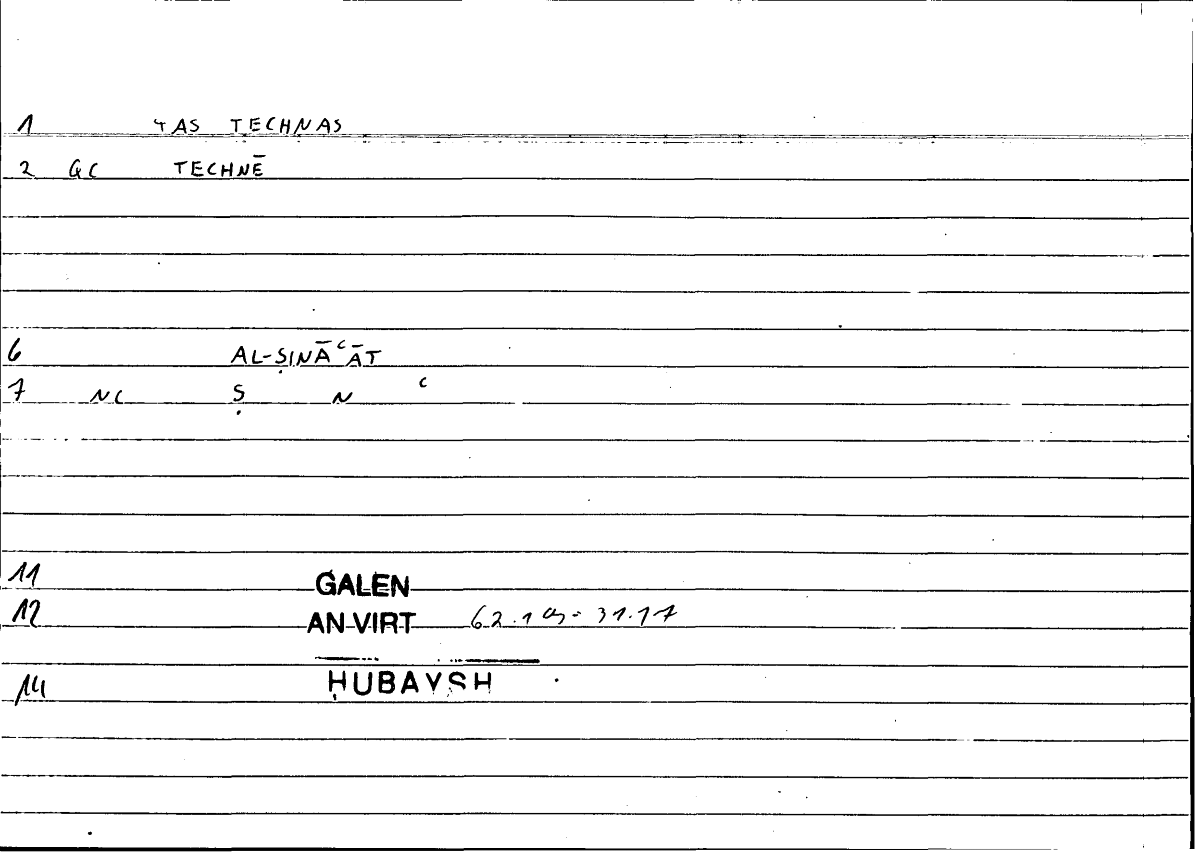 1 TAS TECHNAS
2 GC TECHNĒ
6 AL-ṢINĀʿĀT
7 NC Ṣ N ʿ
11 GALEN
12 AN VIRT 62.19 = 31.17
14 ḤUBAYSH